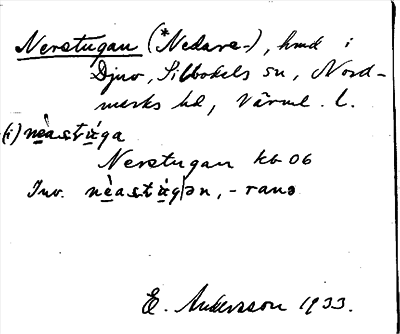 Nerstugan (*Nedare-), hmd i
Djuv, Silbodals sn, Nord-
marks hd, Värml. l.
(i) nèastúga
Nerstugan kb 06
Inv. nèastúgən, -rano
E. Andersson 1933.